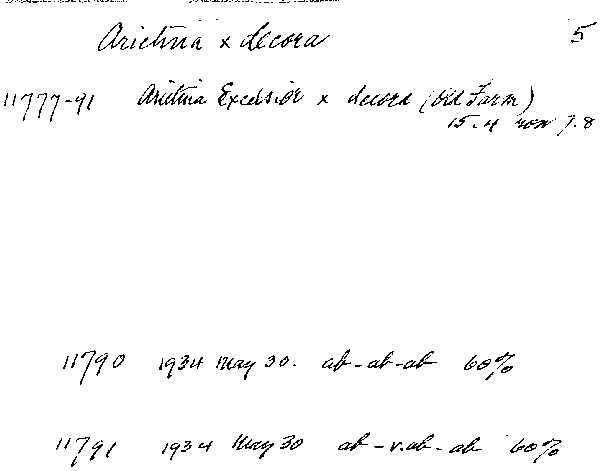 Arietina x decora 5
11777-91 Arietina Excelsior x decora (Old Farm)
15.4 row 7.8
11790 1934 May 30. ab-ab-ab 60%
11791 1934 May 30 ab-v.ab-ab 60%